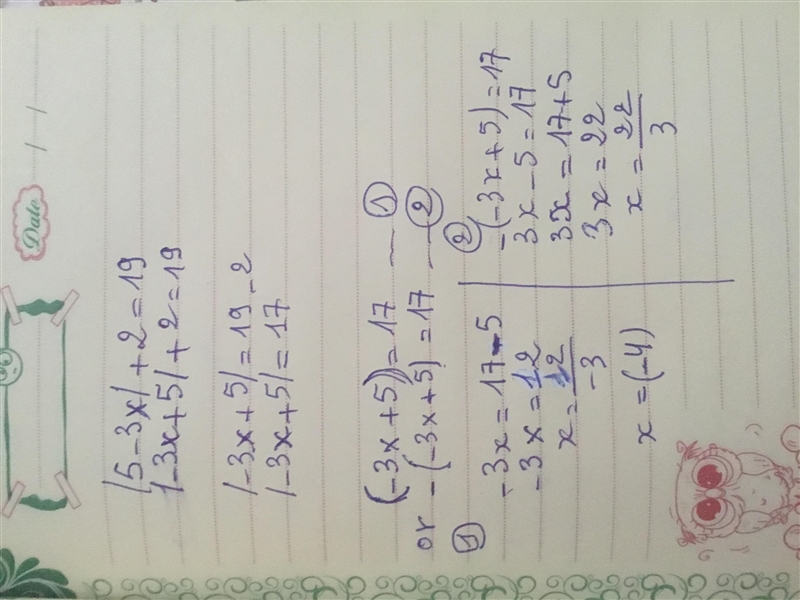 Date / /
|5-3x|+2=19
|-3x+5|+2=19
|-3x+5|=19-2
|-3x+5|=17
(-3x+5)=17 — ①
or -(-3x+5)=17 — ②
①
-3x=17-5
-3x=12
x=12/-3
x=(-4)
②
-(-3x+5)=17
3x-5=17
3x=17+5
3x=22
x=22/3